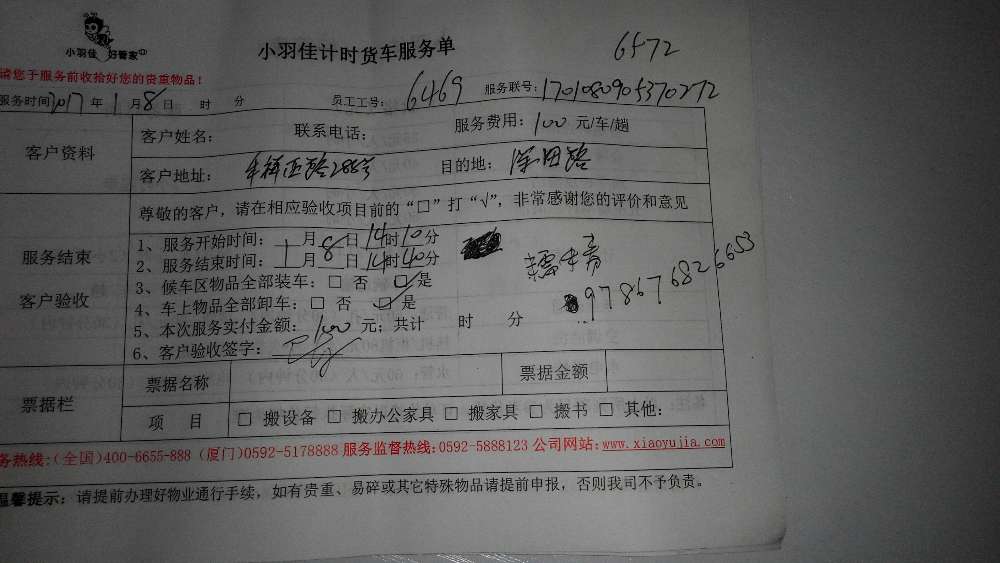 小羽佳 好管家
小羽佳计时货车服务单 6572
请您于服务前收拾好您的贵重物品！
服务时间2017年1月8日 时 分 员工工号：6469 服务联号：1701080905370272
客户资料
客户姓名： 联系电话： 服务费用：100元/车/趟
客户地址： 祥西路288号 目的地： 田路
尊敬的客户，请在相应验收项目前的“口”打“√”，非常感谢您的评价和意见
服务结束
客户验收
1、服务开始时间：1月8日14时10分
2、服务结束时间：1月8日14时40分
3、候车区物品全部装车：□ 否 ☑是
4、车上物品全部卸车：□ 否 ☑是
5、本次服务实付金额：100元；共计 时 分
6、客户验收签字：
978676826653
票据栏
票据名称 票据金额
项 目 □ 搬设备 □ 搬办公家具 □ 搬家具 □ 搬书 □ 其他：
务热线：(全国)400-6655-888 (厦门)0592-5178888 服务监督热线：0592-5888123 公司网站：www.xiaoyujia.com
温馨提示：请提前办理好物业通行手续，如有贵重、易碎或其它特殊物品请提前申报，否则我司不予负责。